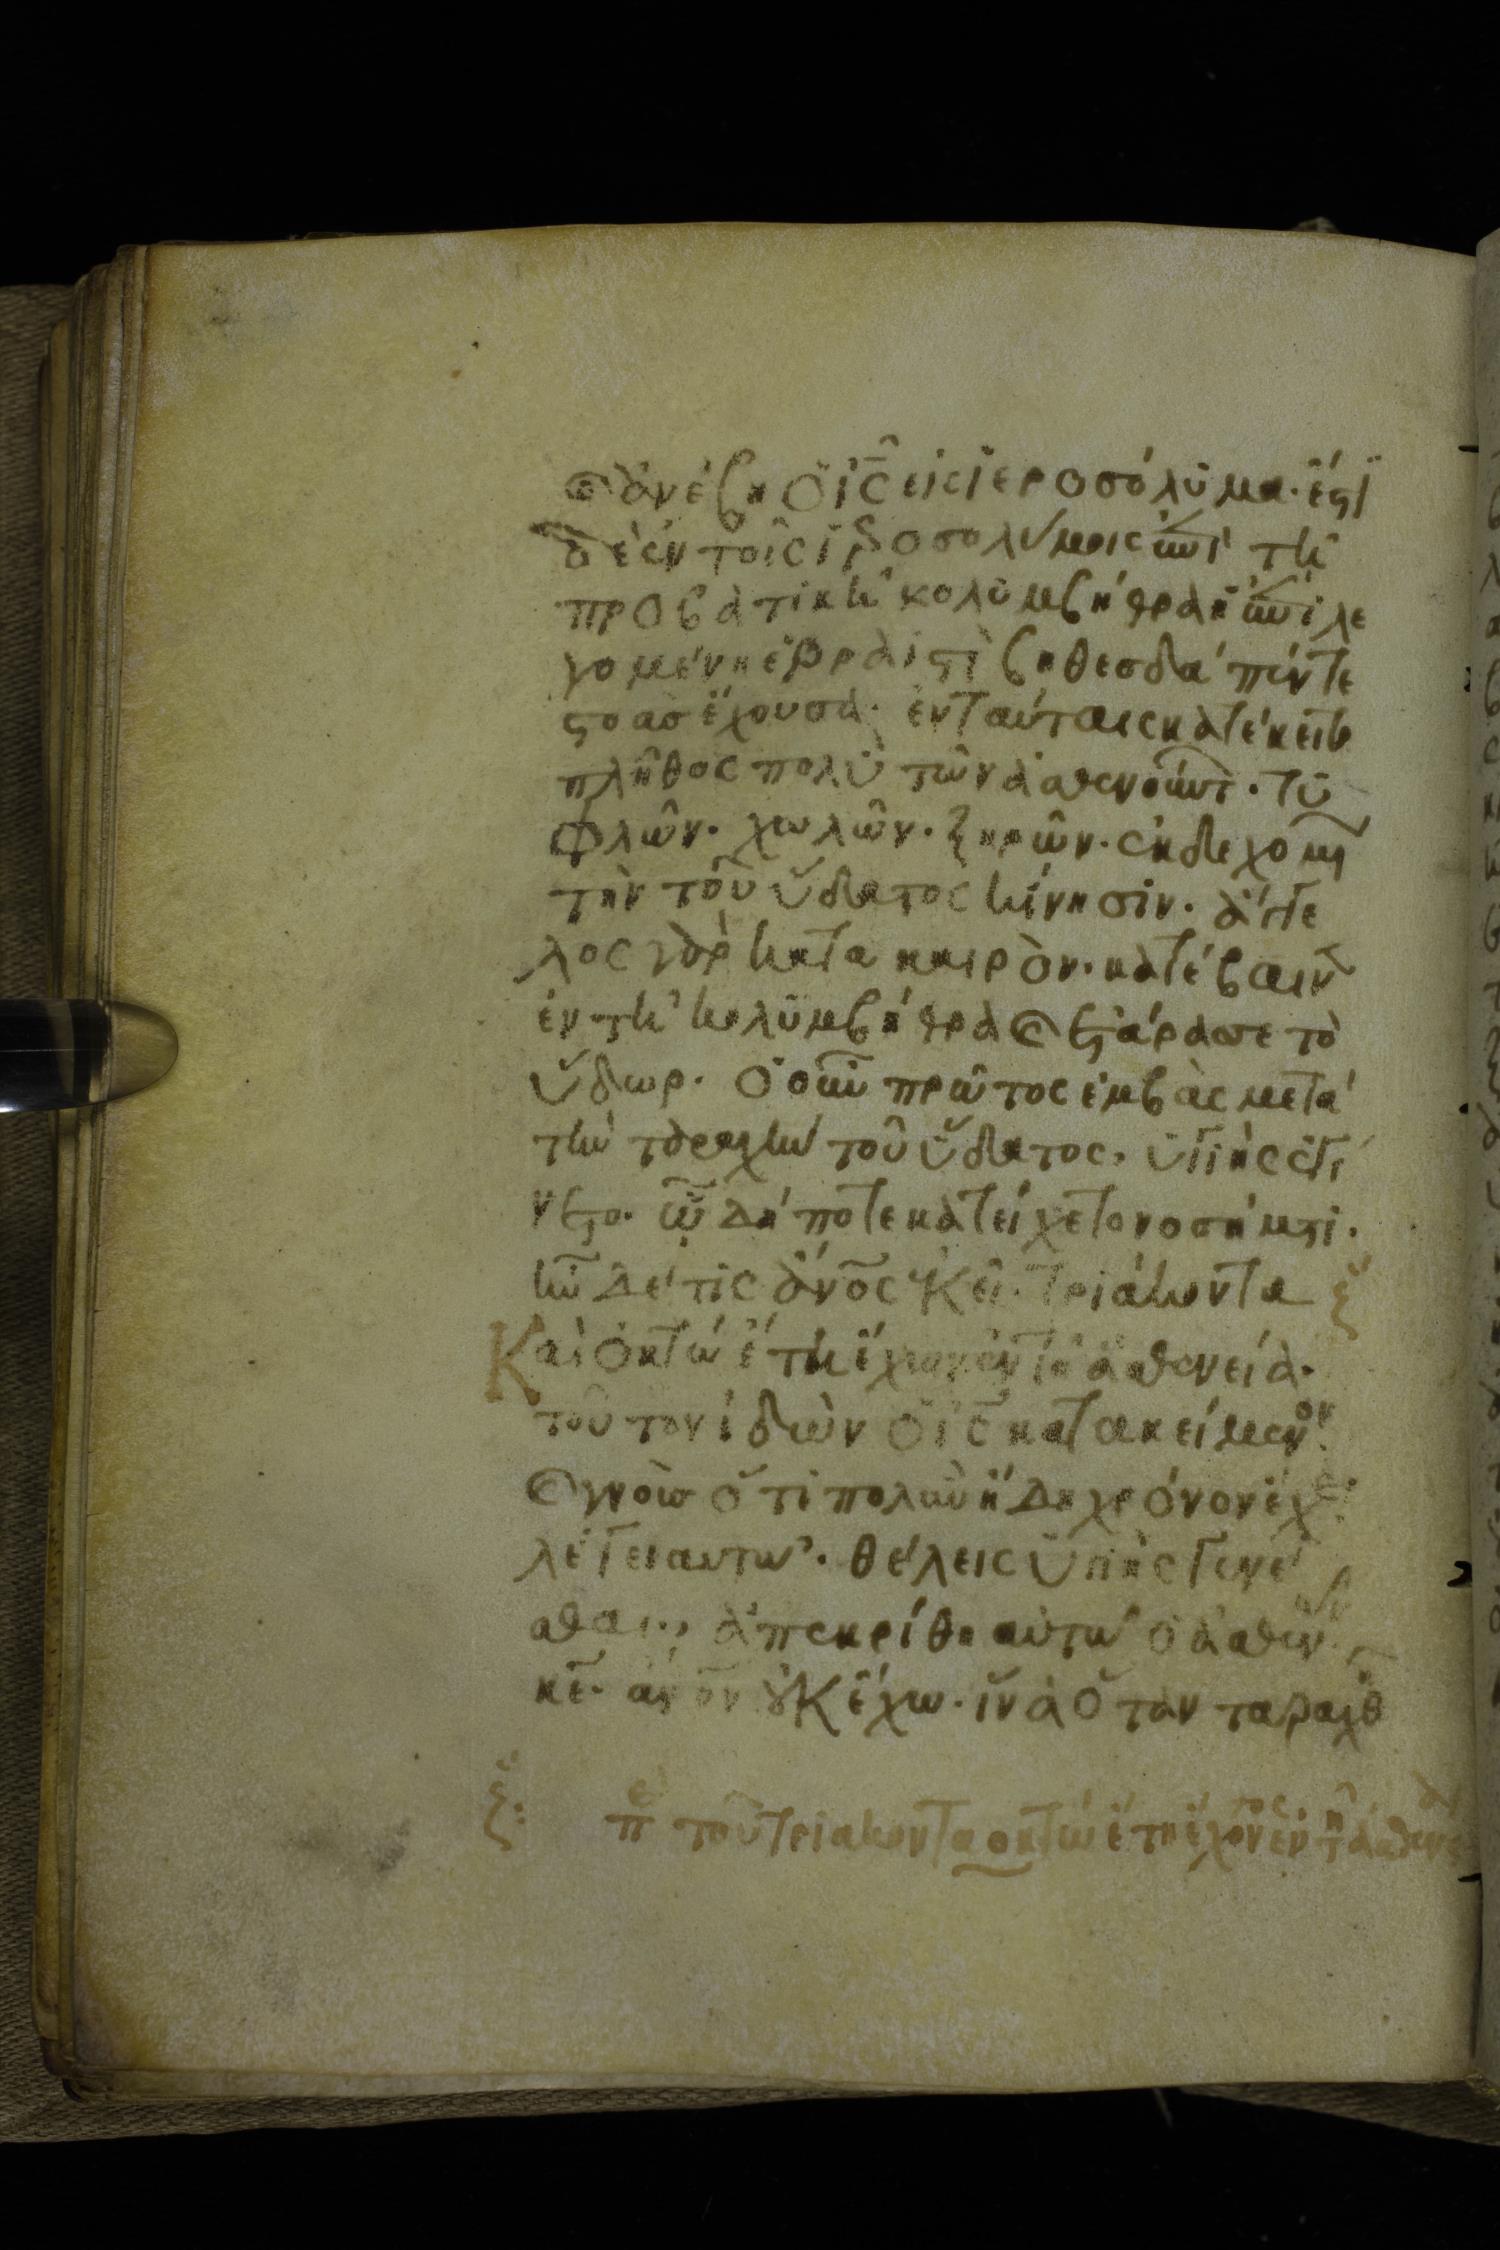 καὶ ἀνέβη ὁ ῑς̄ εἰς ἱεροσόλυμα· ἔστι
δὲ ἐν τοῖς ἱεροσολύμοις ἐπὶ τῆ
προβατικῆ κολυμβήθρα ἡ ἐπιλε
γομένη ἑβραϊστὶ βηθεσδὰ πέντε
στοὰσ ἔχουσα· ἐν ταύταις κατέκειτο
πλῆθος πολὺ τῶν ἀσθενούντ· τυ
φλῶν· χωλῶν· ξηρῶν· ἐκδεχομ
τὴν τοῦ ὕδατος κίνησιν· ἄγγε
λος γὰρ κατὰ καιρὸν· κατέβαιν
ἐν τῆ κολυμβήθρα καὶ ἐτάρασσε τὸ
ὕδωρ· ὁ οὖν πρῶτος ἐμβὰς μετὰ
τὴν ταραχὴν τοῦ ὕδατος, ὑγιὴς ἐγί
νετο· ὧ δήποτε κατείχετο νοσήματι·
ἦν δέ τις ἄνος ἐκεῖ· τριάκοντα ξ
Καὶ ὀκτὼ ἔτη ἔχων ἐν τῆ ἀσθενεία·
τοῦτον ἰδὼν ὁ ῑς̄ κατακείμενον
καὶ γνοὺσ ὅτι πολὺν ἤδη χρόνον ἔχει·
λέγει αὐτῶ· θέλεις ὑγιὴς γενέ
σθαι, ἀπεκρίθη αὐτῶ ὁ ἀσθεν
κε· ἄνον οὐκ ἔχω· ἵνα ὅταν ταραχθ
ξ: π τοῦ τριακονταοκτὼ ἔτη ἔχοντος ἐν τῆ ἀσθενεία